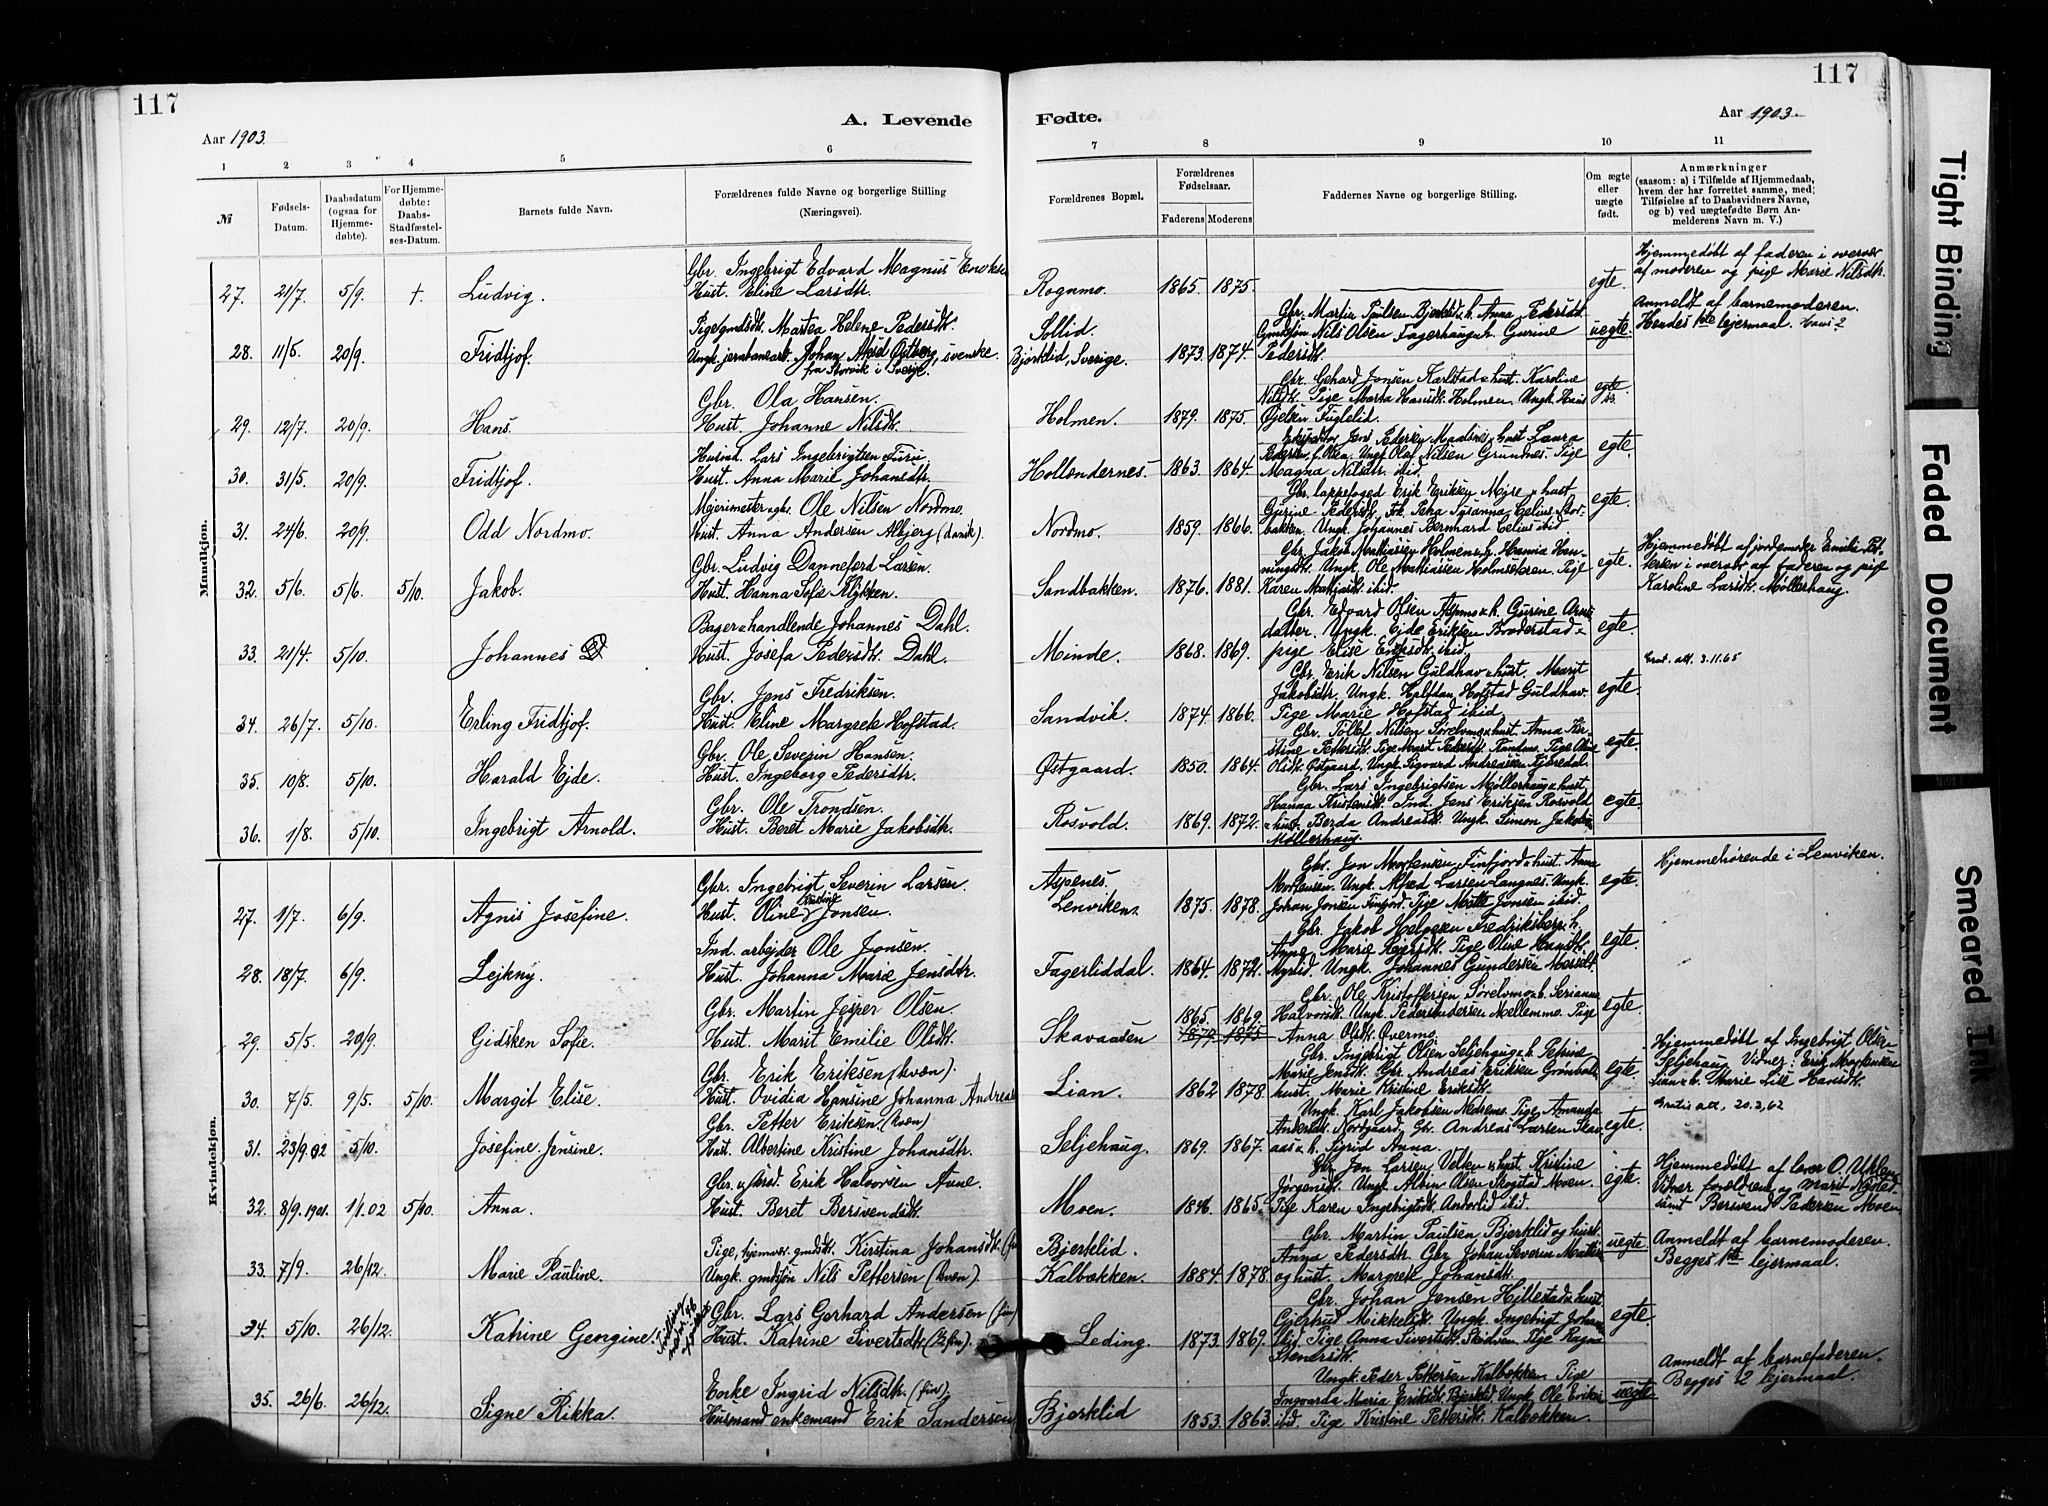 117
117
A. Levende Fødte.
Aar 1903.
Aar 1903.
1 2 3 4 5 6 7 8 9 10 11
№
Fødsels-Datum.
Daabsdatum (ogsaa for Hjemme-døbte).
For Hjemme-døbte: Daabs-Stadfæstel-ses-Datum.
Barnets fulde Navn.
Forældrenes fulde Navne og borgerlige Stilling (Næringsvei).
Forældrenes Bopæl.
Forældrenes Fødselsaar.
Faderens Moderens
Faddernes Navne og borgerlige Stilling.
Om ægte eller uægte født.
Anmærkninger
(saasom: a) i Tilfælde af Hjemmedaab, hvem der har forrettet samme, med Tilføielse af to Daabsvidners Navne, og b) ved uægtefødte Børn An-melderens Navn m. V.)
Mandkjøn.
Gbr. Ingebrigt Edvard Magnus
27. 21/7. 5/9. +. Ludvig. Hust. Eline Larsdtr. Rognmo. 1865. 1875. egte.
Hjemmedøbt af faderen i overvær
af moderen og pige Marie Nilsdtr.
Pige/gmdsdt. Martea Helene Pedersdt. Sollid. Gbr. Martin Bjerklid & h. Anna Pedersdt
Anmeldt af barnemoderen.
Hendes 1ste lejermaal.
28. 11/5. 20/9. Fridtjof. Ungk. jernbanearb. Johan Østberg, svenske. Bjørklid, Sverige. 1873. 1874. Pedersdt. uegte.
fra Storvik i Sverige.
Gmdsøn Nils Olsen Fagerhaug & h. Gurine
Gbr. Ola Hansen. Gbr. Gehard Jonsen Karlstad & hust. Karoline
Nilsdt. Pige Marta Hansdt. Holmen. Ungk. Hans
29. 12/7. 20/9. Hans. Hust. Johanne Nilsdt. Holmen. 1879. 1875. Fuglelid. egte.
Husmd. Lars Ingebrigtsen Furu. Jens Pedersen Maalsnes & hust Laura
30. 31/5. 20/9. Fridtjof. Hust. Anna Marie Johansdtr. Hollendernes. 1863. 1864. Magna Nilsdtr. ibid. egte.
Ungk. Olaf Nilsen Grundnes. Pige
Mejerimester & gbr. Ole Nilsen Nordmo. Gbr. lappefoged Erik Eriksen Mejre & hust
Gurine Pedersdt. Frk. Petra Susanna
31. 24/6. 20/9. Odd Nordmo. Hust. Anna Andersen Albjerg (dansk). Nordmo. 1859. 1866. Ungk. Johannes Bernhard ibid. egte.
Gbr. Ludvig Dannefærd Larsen. Gbr. Jakob Mathiassen Holmen & h. Hanna
Ungk. Ole Mathiassen Holmseteren. Pige
32. 5/6. 5/6. 5/10. Jakob. Hust. Hanna Sofie Klykken. Sandbakken. 1876. 1881. Karen Mathiasdt. ibid. egte.
Hjemmedøbt af jordemoder Emilie
i overvær af faderen og pige
Karoline Larsdt. Møllerhaug.
Bager & handlende Johannes Dahl. Gbr. Edvard Olsen Aspmo & h. Gurine
datter. Ungk. Ejde Eriksen Broderstad &
33. 21/4. 5/10. Johannes D Hust. Josefa Pedersdt. Dahl. Minde. 1868. 1869. pige Elise ibid. egte.
Grat. att. 3.11.65
Gbr. Jens Fredriksen. Gbr. Erik Nilsen Guldhav & hust. Marit
Jakobsdtr. Ungk. Halfdan Hofstad Guldhav.
34. 26/7. 5/10. Erling Fridtjof. Hust. Eline Margrete Hofstad. Sandvik. 1874 1866. Pige Marie Hofstad ibid egte.
Gbr. Ole Severin Hansen. Gbr. Tollef Nilsen & hust. Anna Kir-
stine Pettersdt. Pige Marit Pedersdt. Pige Oline
35. 10/8. 5/10. Harald Ejde. Hust. Ingeborg Pedersdtr. Østgaard. 1850. 1864. Olsdt. Østgaard. Ungk. Sigvard Andreassen egte.
Gbr. Ole Trondsen. Gbr. Lars Ingebrigtsen Møllerhaug & hust
Hanna Kristensdt. Ind. Jens Eriksen Rosvold
36. 1/8. 5/10. Ingebrigt Arnold. Hust. Beret Marie Jakobsdtr. Rosvold. 1869. 1872. & hust. Berda Andreasdt. Ungk. Simon egte.
Møllerhaug.
Kvindekjøn.
Gbr. Ingebrigt Severin Larsen. Aspenes Gbr. Jon Mortensen Finfjord & hust. Anna
Hjemmehørende i Lenviken.
Mortensen. Ungk. Alfred Larsen Langnes. Ungk.
27. 1/7. 6/9. Agnis Josefine. Hust. Oline Kristine Jonsen. Lenviken. 1875. 1878. Johan Jonsen Finfjord. Pige Jonsen ibid. egte.
Ind. arbejder Ole Jonsen. Gbr. Jakob Helgesen Fredriksberg & h.
Anne Marie Pige Oline Hansdt.
28. 18/7. 6/9. Lejkny. Hust. Johanna Marie Jensdtr. Fagerliddal. 1864. 1872. Myrlid. Ungk. Johannes Gundersen egte.
Gbr. Martin Jesper Olsen. 1865. 1869. Gbr. Ole Kristoffersen Sørelvmo & h. Serianna
Halvorsdt. Ungk. Peder Mellemmo. Pige
29. 5/5. 20/9. Gidsken Sofie. Hust. Marit Emilie Olsdt. Skavaasen 1879 1875 Anna Olsdt. Øvermo. egte.
Gbr. Erik Eriksen (kvæn). Gbr. Ingebrigt Olsen Seljehaug & h. Petrine
Hjemmedøbt af Ingebrigt Olsen
Seljehaug. Vidner: Erik Mortensen
Lian & h. Marie Lise Hansdt.
Marie Jensdt. Gbr. Andreas Eriksen
30. 7/5. 9/5. 5/10. Margit Elise. Hust. Ovidia Hansine Johanna Lian. 1862 1878. hust. Marie Kristine Eriksdt. egte
Gratis att. 20.2.62
Gbr. Petter Eriksen. (kvæn) Ungk. Karl Jakobsen Nedremo. Pige Amanda
Andersdt. Nordgaard. Gbr. Andreas Larsen Skav-
31. 23/9.02 5/10. Josefine Jensine. Hust. Albertine Kristine Johansdtr. Seljehaug. 1869. 1867. aas & h. Sigrid Anna. egte.
Gbr. Erik Halvorsen Aune. Gbr. Jon Larsen & hust. Kristine
Jørgensdt. Ungk. Albin Olsen Skogstad Moen.
32. 8/9.1901. 1/1.02 5/10. Anna. Hust. Beret Bersvendsdt. Moen. 1865. Pige Karen Ingebrigtsdt. ibid. egte.
Hjemmedøbt af lærer O. Uhlen.
Vidner forældrene, Marit
samt Bersvend Pedersen Moen
Pige, hjemvær. gmdsdt. Kirstina Johansdt. Bjerklid. Gbr. Martin Paulsen Bjerklid og hust.
Anmeldt af barnemoderen.
Begges 1ste lejermaal.
Anna Pedersdtr. Gbr. Johan Severin
33. 7/9. 26/12. Marie Pauline. Ungk. gmdsøn Nils Pettersen (kvæn). Kalbækken. 1884. 1878. og hust. Margrete Johansdt. uegte
Gbr. Lars Gerhard Andersen (fin) Gbr. Johan Jensen Hillestad & hust
Gjertrud Mikkelsdt. Ungk. Ingebrigt
34. 5/10. 26/12. Katrine Georgine. Hust. Katrine Sivertsdt. Leding. 1873. 1869. Pige Anna Sivertsdt. Pige Ragna egte.
Stenersdt.
Enke Ingrid Nilsdtr. (fin) Ungk. Peder Pettersen Kalbækken. Pige
Anmeldt af barnefaderen.
Begges 2 lejermaal.
35. 26/6. 26/12. Signe Rikka. Husmand enkemand Erik Sandersen Bjerklid 1853. 1863. uegte
Ingvarda Maria Eriksdt. Bjerklid. Ungk. Ole
ibid. Pige Kristine Pettersdt. Kalbækken.
Tight Binding
Faded Document
Smeared Ink